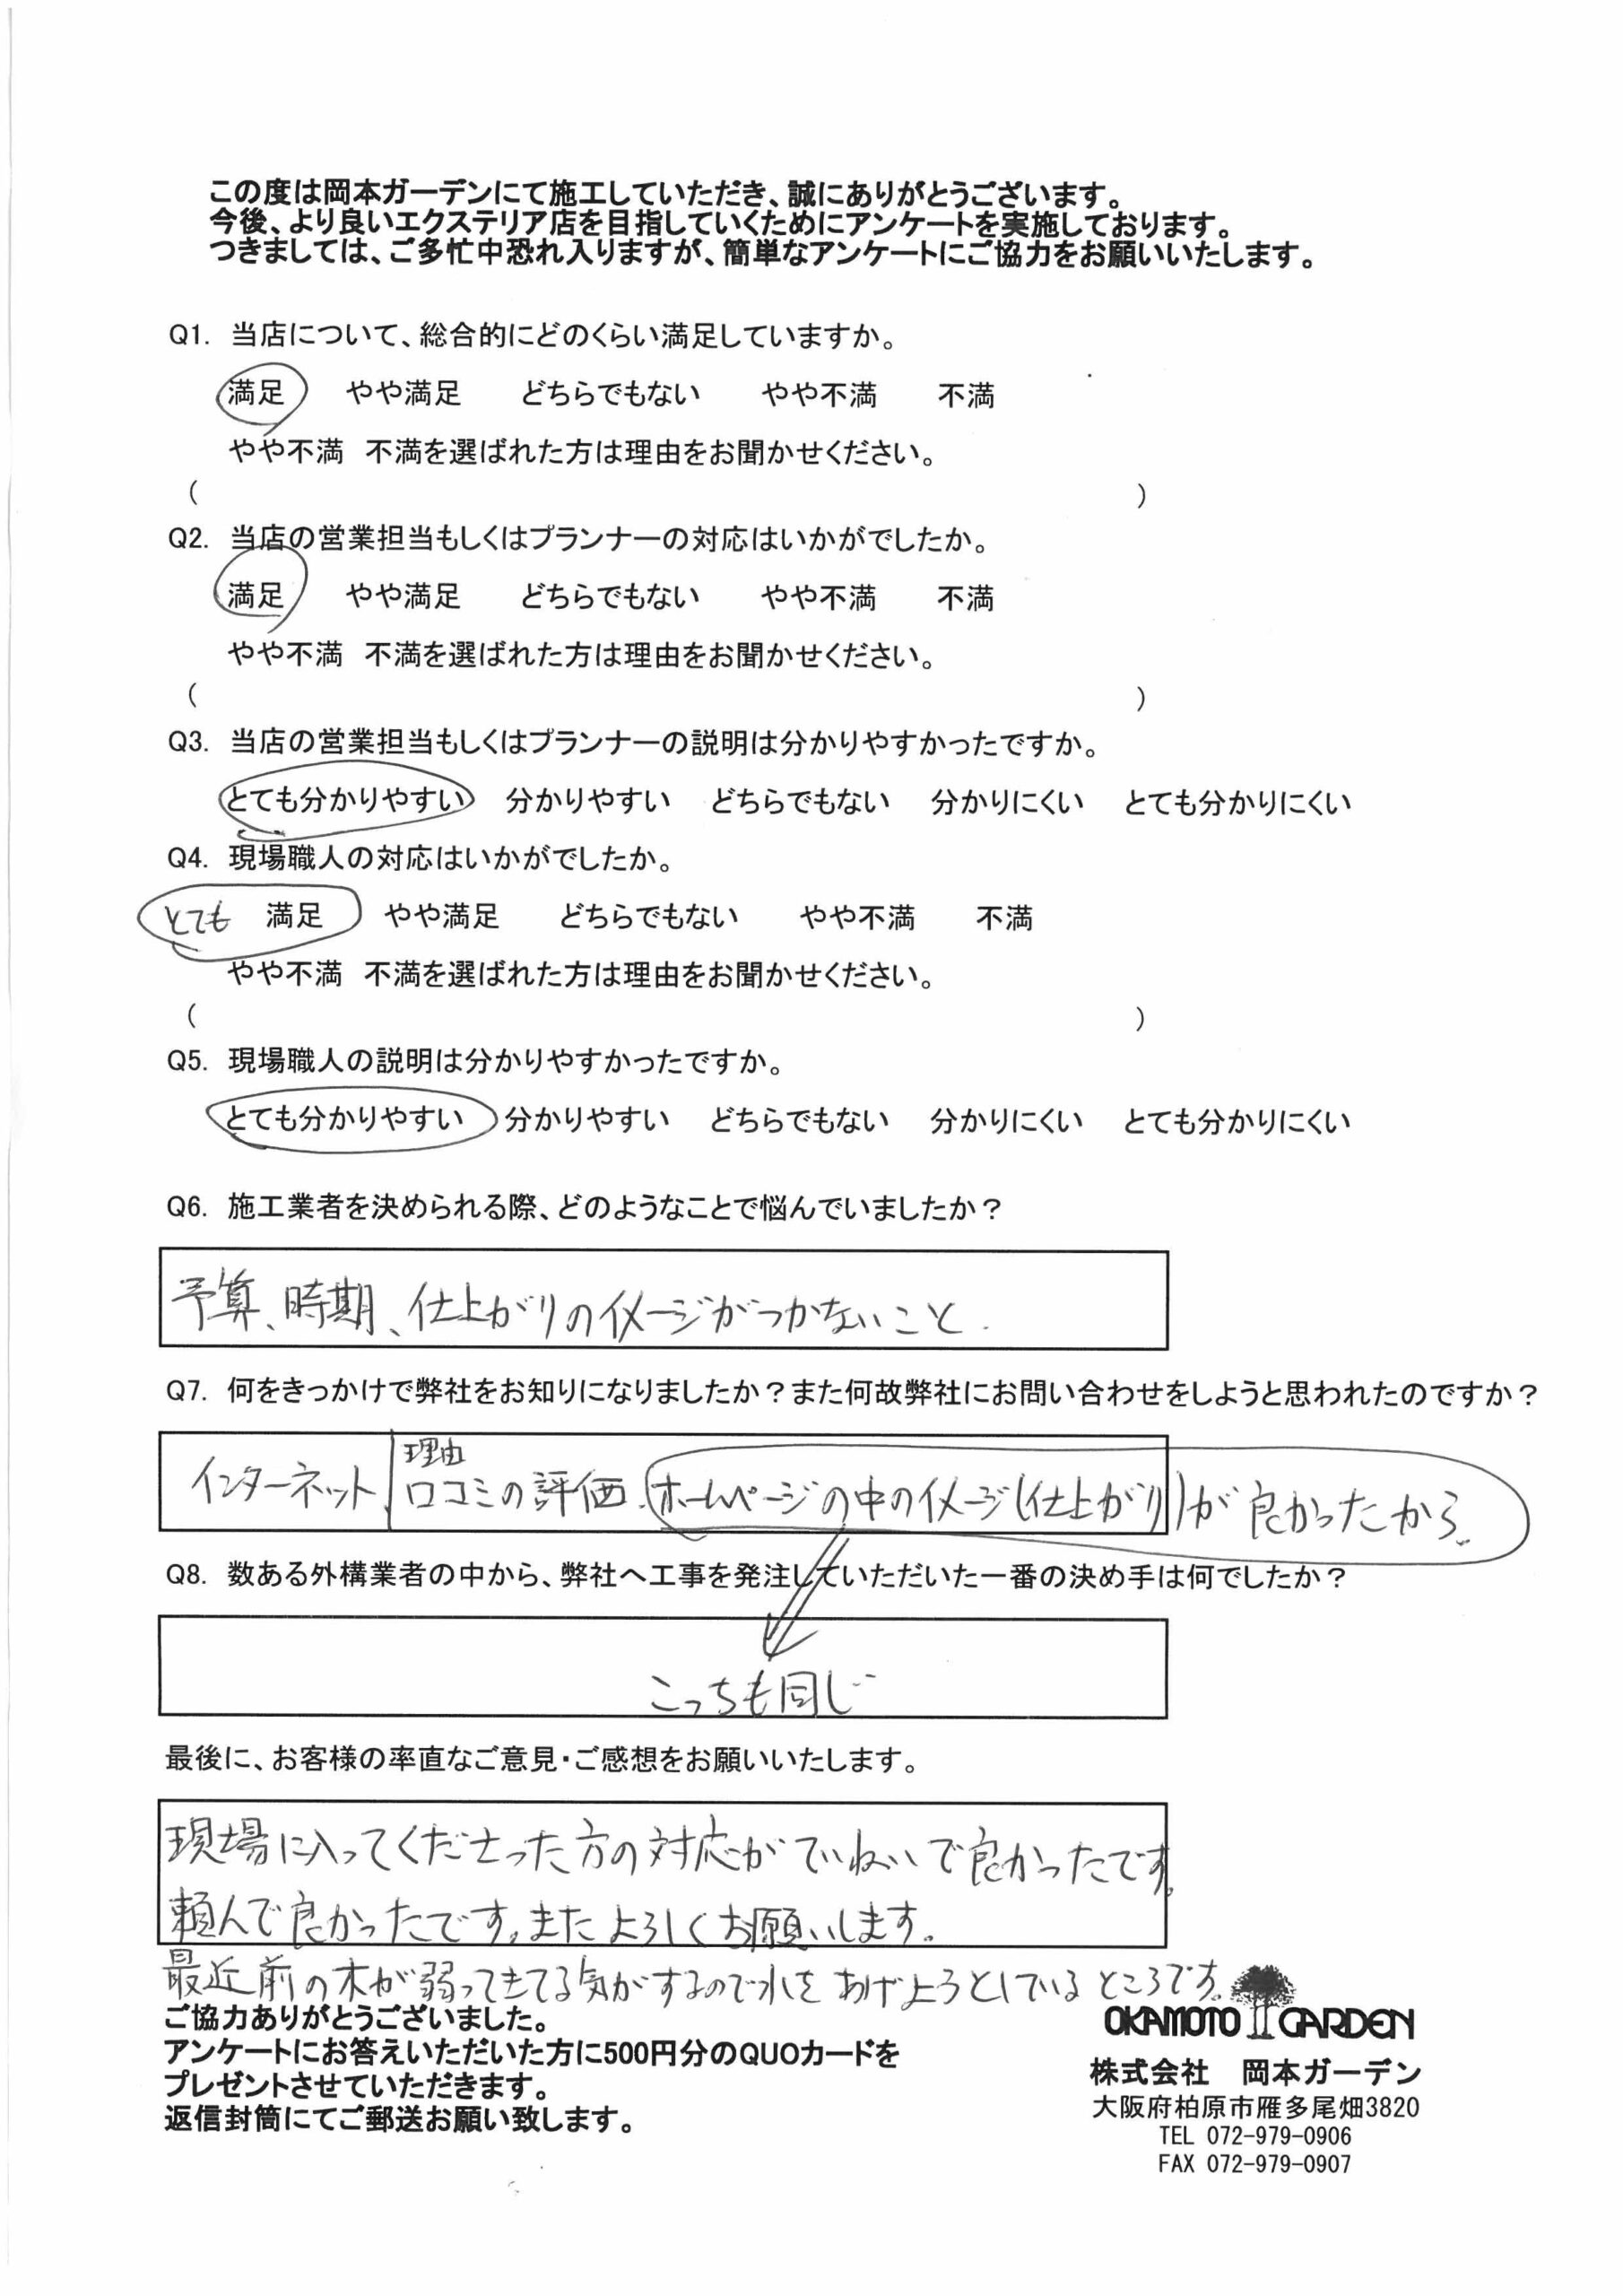 この度は岡本ガーデンにて施工していただき、誠にありがとうございます。
今後、より良いエクステリア店を目指していくためにアンケートを実施しております。
つきましては、ご多忙中恐れ入りますが、簡単なアンケートにご協力をお願いいたします。
Q1. 当店について、総合的にどのくらい満足していますか。
満足 やや満足 どちらでもない やや不満 不満
やや不満 不満を選ばれた方は理由をお聞かせください。
( )
Q2. 当店の営業担当もしくはプランナーの対応はいかがでしたか。
満足 やや満足 どちらでもない やや不満 不満
やや不満 不満を選ばれた方は理由をお聞かせください。
( )
Q3. 当店の営業担当もしくはプランナーの説明は分かりやすかったですか。
とても分かりやすい 分かりやすい どちらでもない 分かりにくい とても分かりにくい
Q4. 現場職人の対応はいかがでしたか。
とても 満足 やや満足 どちらでもない やや不満 不満
やや不満 不満を選ばれた方は理由をお聞かせください。
( )
Q5. 現場職人の説明は分かりやすかったですか。
とても分かりやすい 分かりやすい どちらでもない 分かりにくい とても分かりにくい
Q6. 施工業者を決められる際、どのようなことで悩んでいましたか？
予算、時期、仕上がりのイメージがつかないこと.
Q7. 何をきっかけで弊社をお知りになりましたか？また何故弊社にお問い合わせをしようと思われたのですか？
理由
インターネット、口コミの評価、ホームページの中のイメージ(仕上がり)が良かったから。
Q8. 数ある外構業者の中から、弊社へ工事を発注していただいた一番の決め手は何でしたか？
こっちも同じ
最後に、お客様の率直なご意見・ご感想をお願いいたします。
現場に入ってくださった方の対応がていねいで良かったです。
頼んで良かったです。またよろしくお願いします。
最近前の木が弱ってきてる気がするので水をあげようとしているところです。
ご協力ありがとうございました。
アンケートにお答えいただいた方に500円分のQUOカードを
プレゼントさせていただきます。
返信封筒にてご郵送お願い致します。
OKAMOTO GARDEN
株式会社 岡本ガーデン
大阪府柏原市雁多尾畑3820
TEL 072-979-0906
FAX 072-979-0907